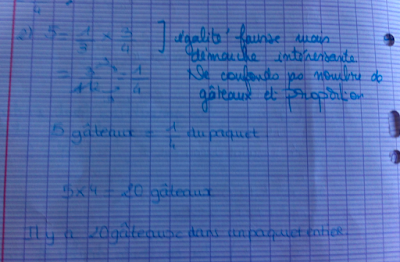 4
2) 5 = 1/3 × 3/4 ] égalité fausse mais
démarche intéressante.
= 3/12 = 1/4 Ne confonds pas nombre de
gâteaux et proportion
5 gâteaux = 1/4 du paquet
5×4 = 20 gâteaux
Il y a 20 gâteaux dans un paquet entier